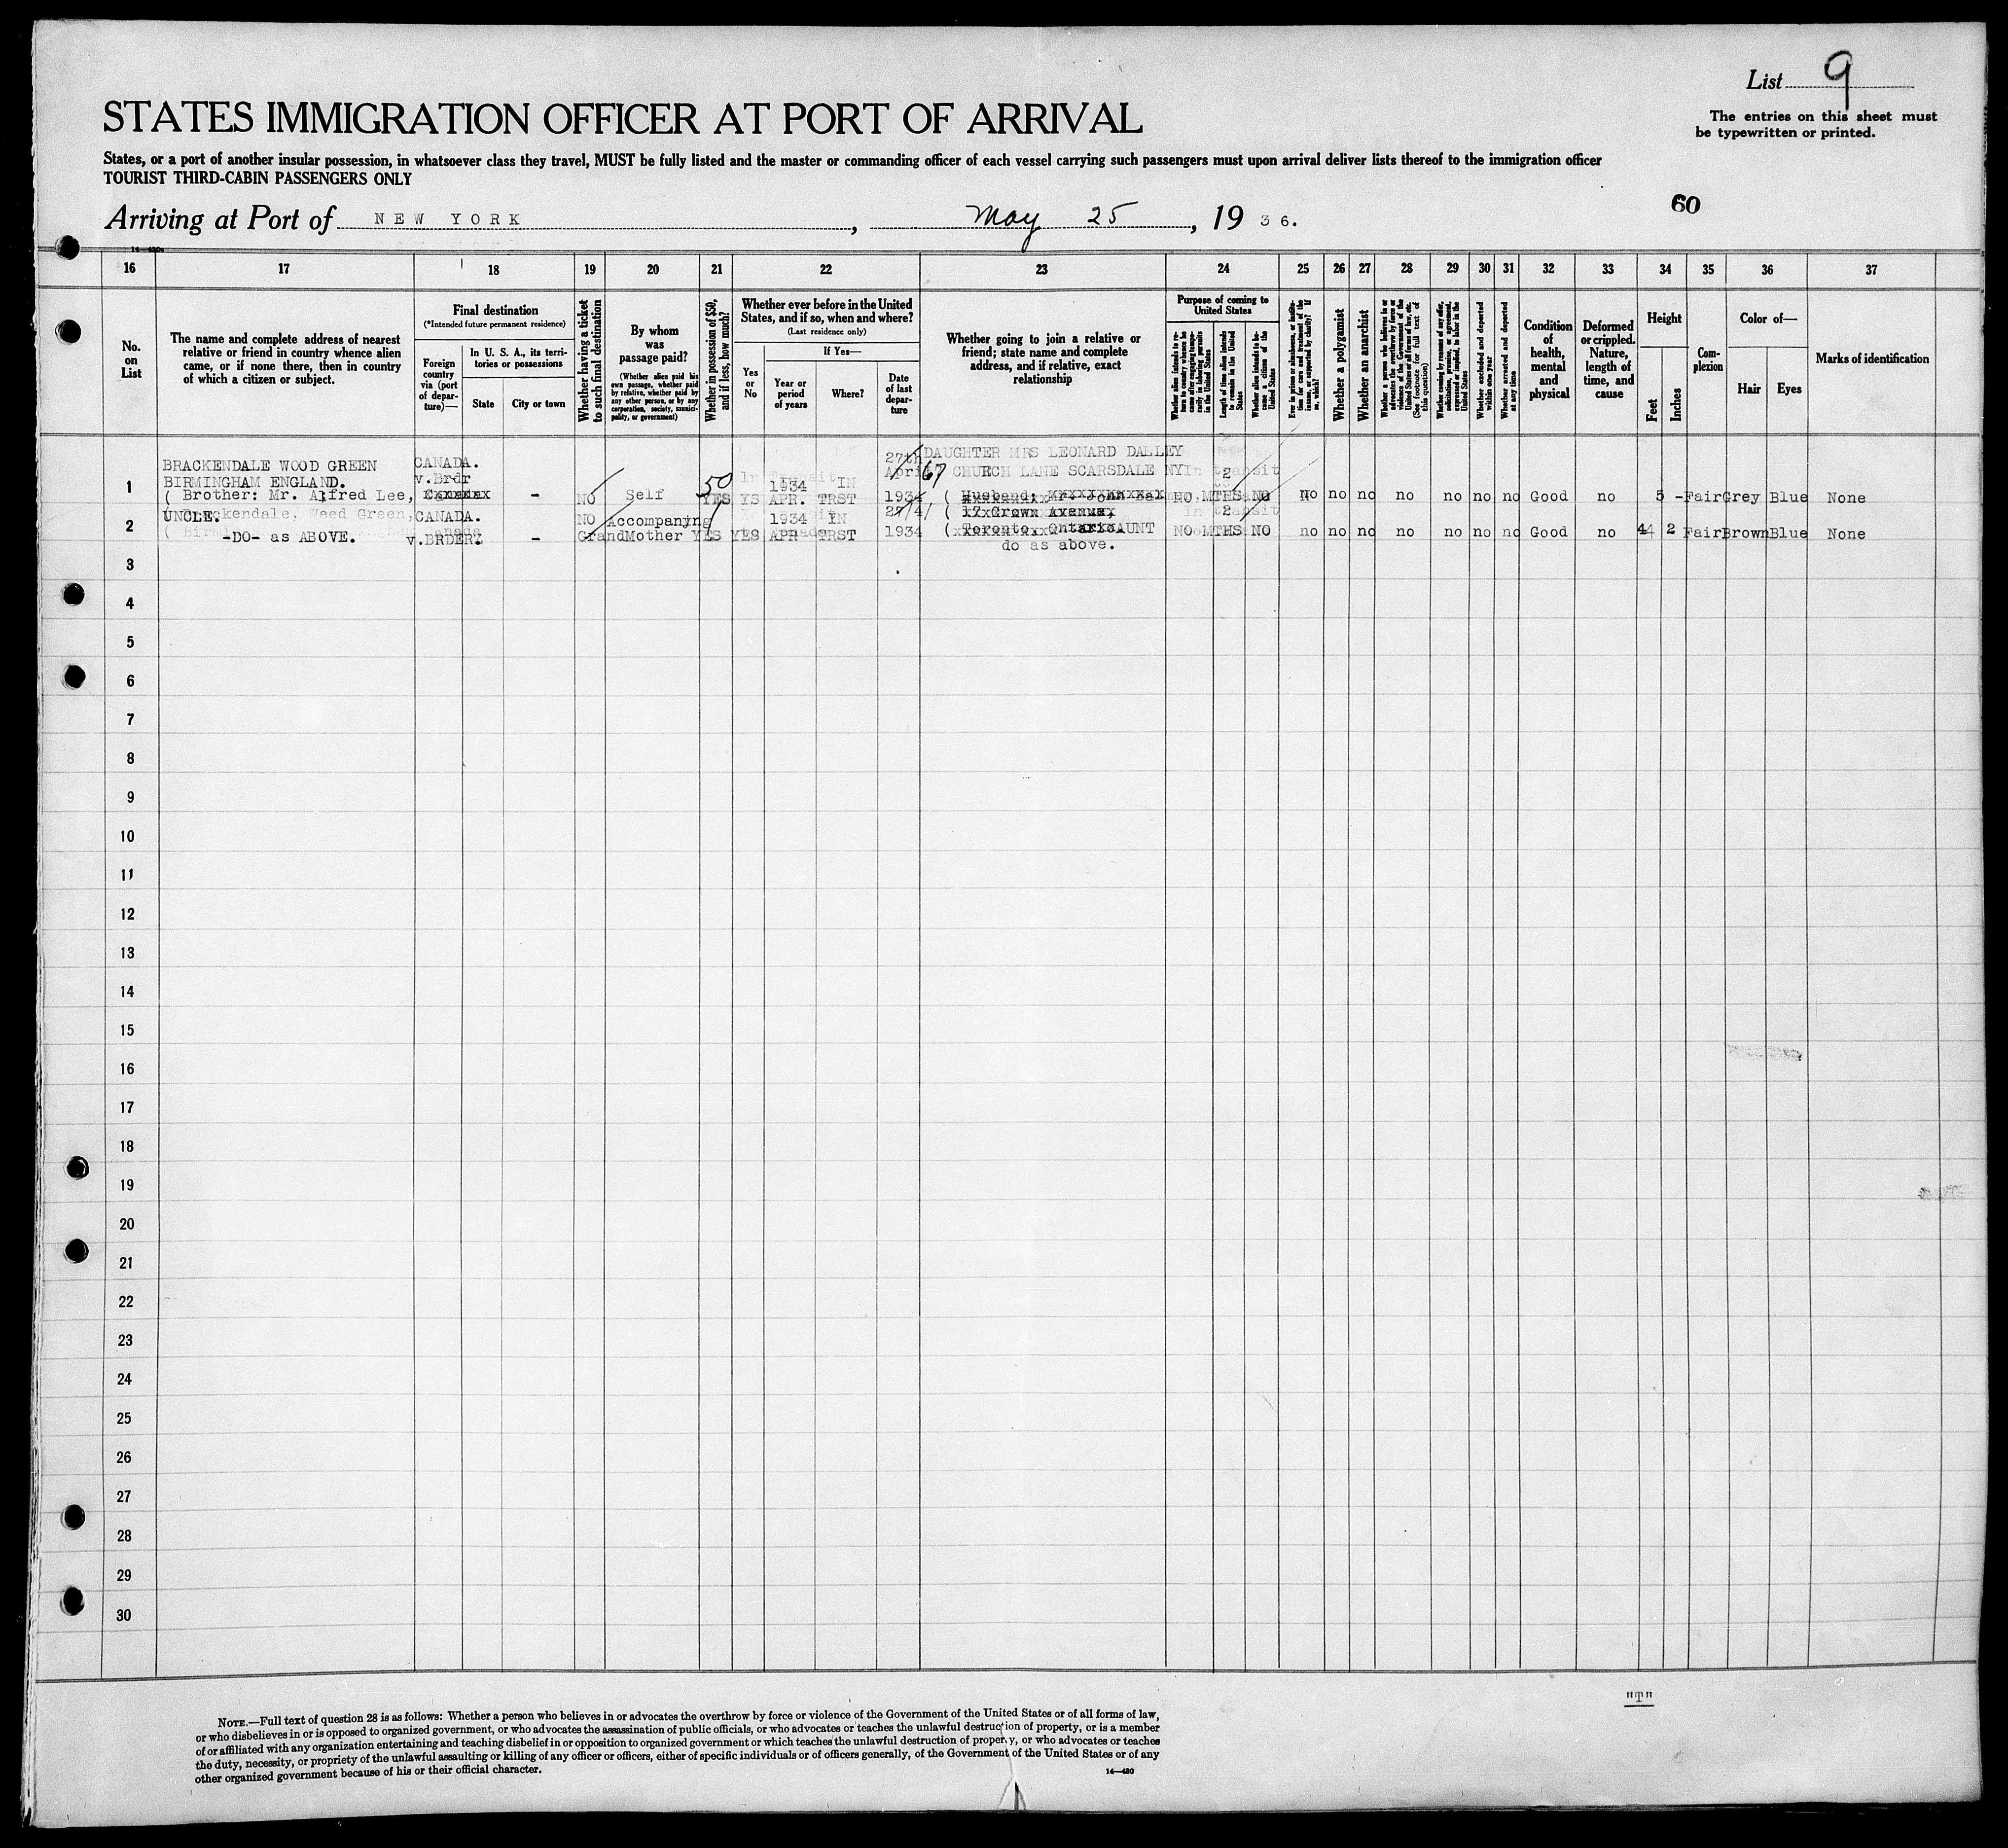 List 9
The entries on this sheet must
be typewritten or printed.
STATES IMMIGRATION OFFICER AT PORT OF ARRIVAL
States, or a port of another insular possession, in whatsoever class they travel, MUST be fully listed and the master or commanding officer of each vessel carrying such passengers must upon arrival deliver lists thereof to the immigration officer
TOURIST THIRD-CABIN PASSENGERS ONLY
60
Arriving at Port of NEW YORK, May 25, 1936.
16 17 18 19 20 21 22 23 24 25 26 27 28 29 30 31 32 33 34 35 36 37
No. on List
The name and complete address of nearest
relative or friend in country whence alien
came, or if none there, then in country
of which a citizen or subject.
Final destination
(*Intended future permanent residence)
Foreign country via (port of departure)—
In U. S. A., its territories or possessions
State
City or town
Whether having a ticket to such final destination
By whom was passage paid?
(Whether alien paid his own passage, whether paid by relative, whether paid by any other person, or by any corporation, society, municipality, or government)
Whether in possession of $50, and if less, how much?
Whether ever before in the United
States, and if so, when and where?
(Last residence only)
Yes or No
If Yes—
Year or period of years
Where?
Date of last departure
Whether going to join a relative or
friend; state name and complete
address, and if relative, exact
relationship
Purpose of coming to
United States
Whether alien intends to return to country whence he came after engaging temporarily in laboring pursuits in the United States
Length of time alien intends to remain in the United States
Whether alien intends to become a citizen of the United States
Ever in prison or almshouse, or institution for care and treatment of the insane, or supported by charity? If so, which?
Whether a polygamist
Whether an anarchist
Whether a person who believes in or advocates the overthrow by force or violence of the Government of the United States or all forms of law, etc. (See footnote for full text of this question)
Whether coming by reasons of any offer, solicitation, promise, or agreement, expressed or implied, to labor in the United States
Whether excluded and deported within one year
Whether arrested and deported at any time
Condition of health, mental and physical
Deformed or crippled. Nature, length of time, and cause
Height
Feet
Inches
Complexion
Color of—
Hair
Eyes
Marks of identification
27th DAUGHTER MRS LEONARD DALLEY
BRACKENDALE WOOD GREEN CANADA. April 67 CHURCH LANE SCARSDALE NY In transit 2
BIRMINGHAM ENGLAND. v.Brdr 50 1934 IN
1 ( Brother: Mr. Alfred Lee, - NO Self YES YS APR. TRST 1934 ( Husband: NO MTHS NO no no no no no no no Good no 5 - Fair Grey Blue None
UNCLE. Brackendale, Weed Green, CANADA. NO Accompaning 1934 IN 27/4/ ( 17 Crown Avenue, In transit 2
2 -DO- as ABOVE. v.BRDER. - GrandMother YES YES APR TRST 1934 ( Toronto, Ontario AUNT NO MTHS NO no no no no no no no Good no 4 2 Fair Brown Blue None
do as above.
3
4
5
6
7
8
9
10
11
12
13
14
15
16
17
18
19
20
21
22
23
24
25
26
27
28
29
30
"T"
NOTE.—Full text of question 28 is as follows: Whether a person who believes in or advocates the overthrow by force or violence of the Government of the United States or of all forms of law,
or who disbelieves in or is opposed to organized government, or who advocates the assassination of public officials, or who advocates or teaches the unlawful destruction of property, or is a member
of or affiliated with any organization entertaining and teaching disbelief in or opposition to organized government or which teaches the unlawful destruction of property, or who advocates or teaches
the duty, necessity, or propriety of the unlawful assaulting or killing of any officer or officers, either of specific individuals or of officers generally, of the Government of the United States or of any
other organized government because of his or their official character.
14—430